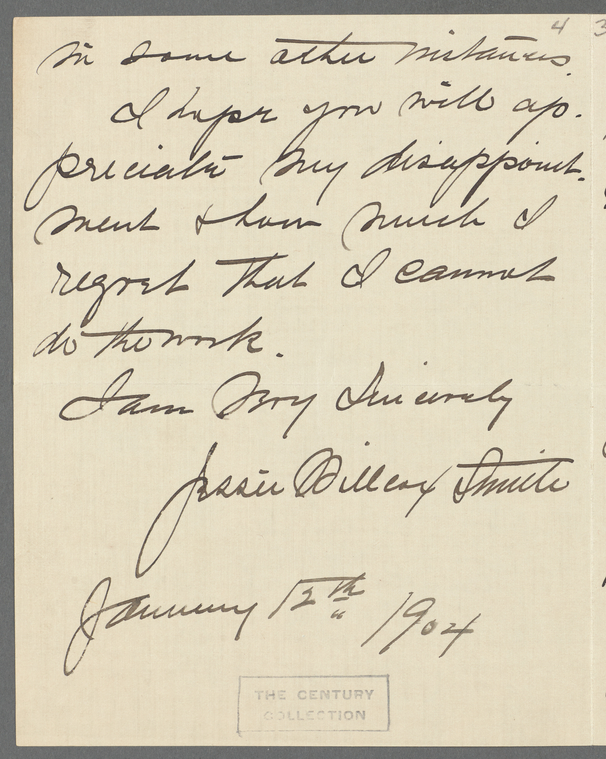 4 3
in some other instances.
I hope you will ap-
preciate my disappoint-
ment & how much I
regret that I cannot
do the work.
I am Very Sincerely
Jessie Willcox Smith
January 12th 1904
THE CENTURY
COLLECTION